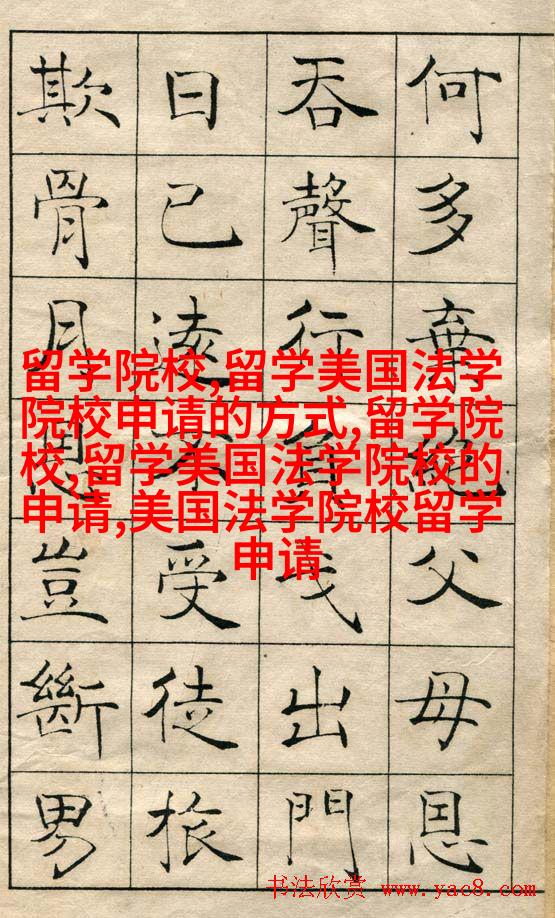 何多棄絶父母恩
吞聲行負戈出門
日已遠不受徒旅
欺骨月恩豈斷男
留学院校,留学美国法学
院校申请的方式,留学院
校,留学美国法学院校的
申请,美国法学院校留学
申请
书法欣赏 www.yac8.com